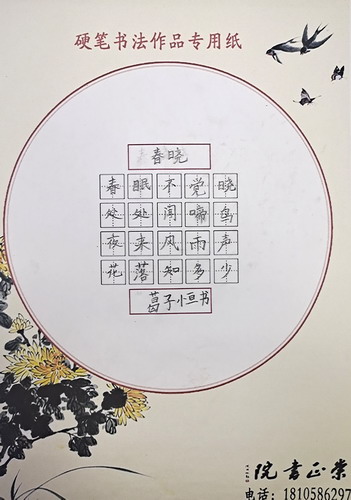 硬笔书法作品专用纸
春晓
春眠不觉晓
处处闻啼鸟
夜来风雨声
花落知多少
葛子小亘书
院书正崇
电话：1810586297